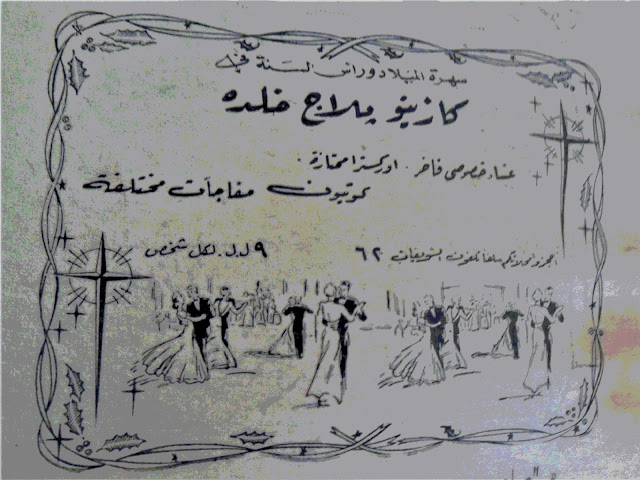 سهرة الميلاد وراس السنة في
كازينو پلاج خلده
عشاء خصوصي فاخر . اوركسترا ممتازة .
كوتيون مفاجآت مختلفة
احجزوا محلاتكم سلفا تلفون الشويفات ٦٢
٩ ل.ل. لكل شخص